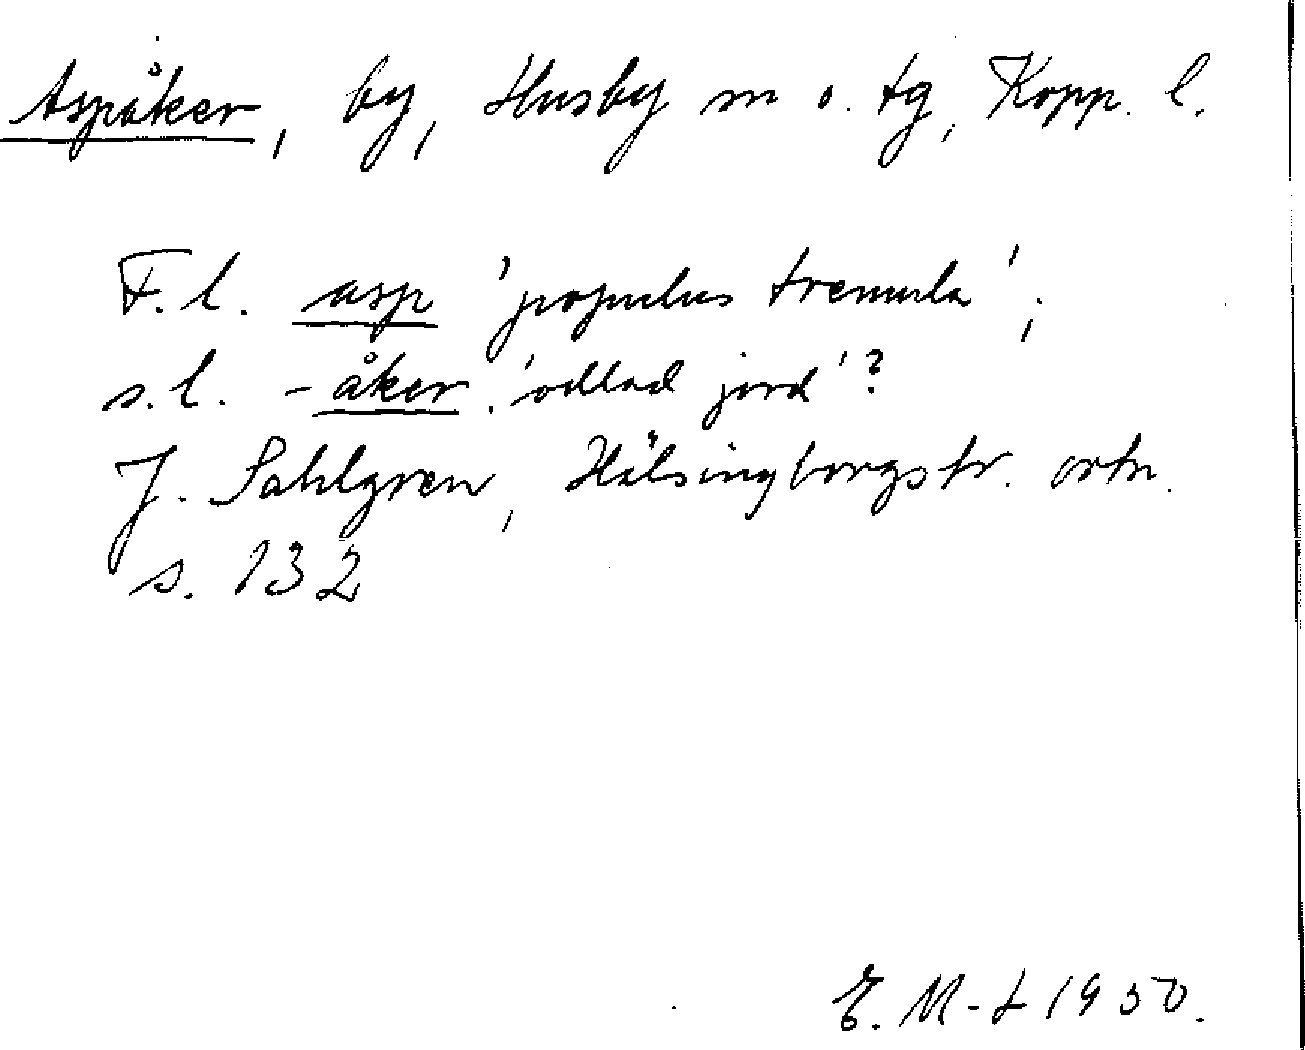 Aspåker, by, Husby sn o. tg, Kopp. l.
F.l. asp 'populus tremula';
s.l. -åker, 'odlad jord'?
J. Sahlgren, Hälsingborgstr. ortn.
s. 132
E. M-L 1950.